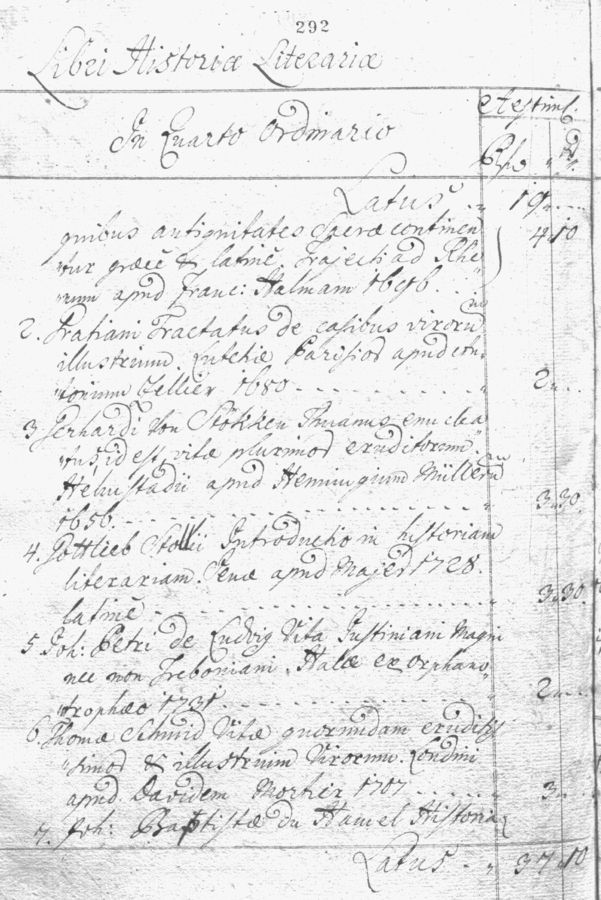 292
Libri Historiæ Literariæ
Æstim:
In Quarto Ordinario
Latus 19
quibus antiquitates Sacræ continen 4 10
tur græcè & latinè. Trajecti ad Rhe
num apud Franc: Halmam 1696.
2. Gratiani Tractatus de casibus virorum
illustrium. Lutetiæ Parisior apud An
tonium Cellier 1680 2
3 Gerhardi Von Stökken Thuanus enuclea
tus, id est, vitæ plurimor eruditorum
Helmstadii apud Henningium Müllerum
1656. 3 30
4. Gottlieb Stollii Introductio in historiam
literariam. Jenæ apud Majer 1728.
latinè 3 30
5 Joh: Petri de Ludvig Vita Justiniani Magni
nec non Treboniani. Halæ ex orphano
trophæo 1731 2
6. Thomæ Schmid Vitæ quorundam erudiss
simor & illustrium Virorum. Londini
apud Davidem Mortier 1707 3
7. Joh: Baptistæ du Hamel Historia
Latus 37 10